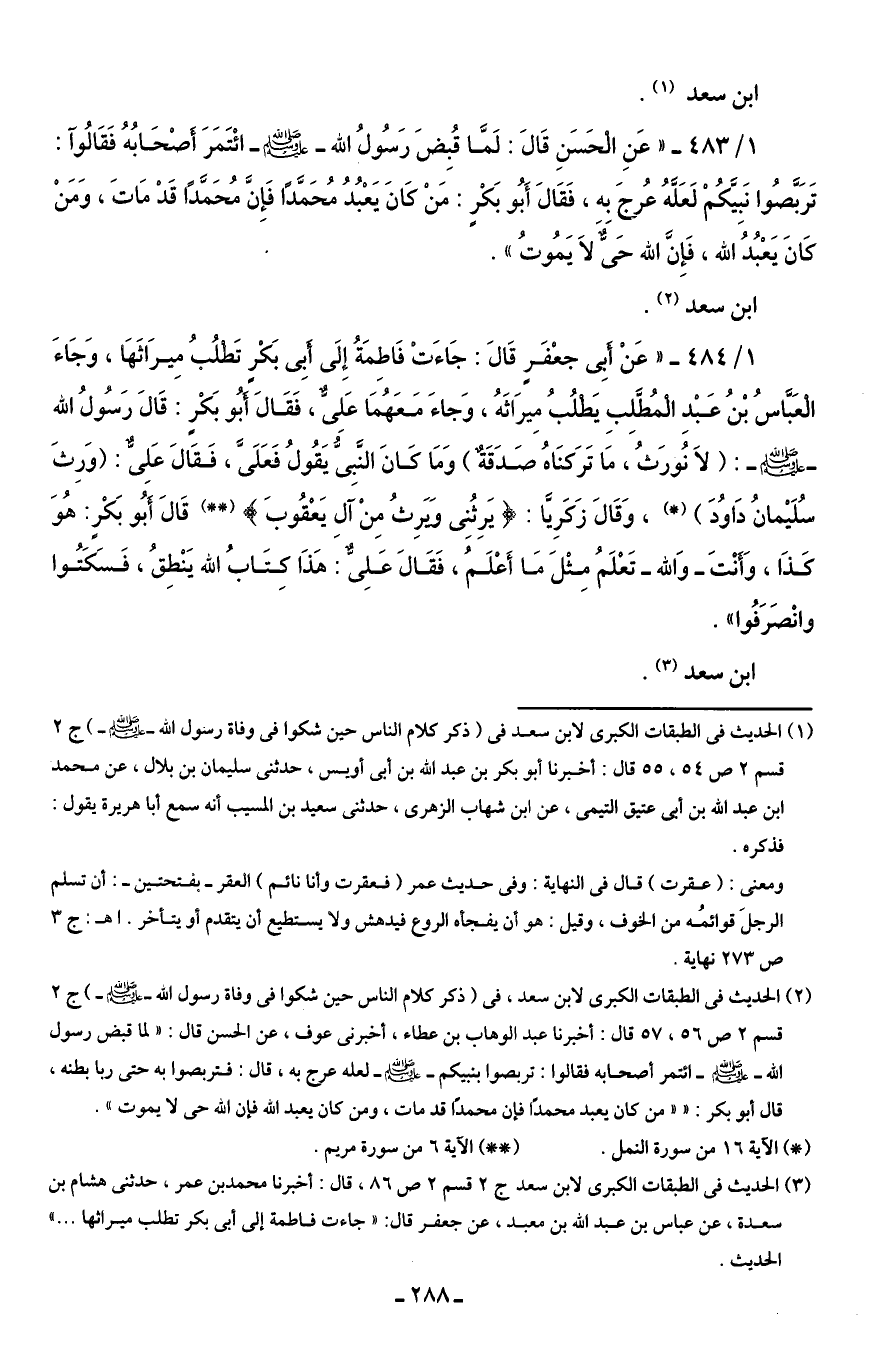 ابن سعد (١) .
١/ ٤٨٣ ـ « عَنِ الْحَسَنِ قَالَ : لَمَّا قُبِضَ رَسُولُ الله ـ ﷺ ـ ائْتَمَرَ أَصْحَابُهُ فَقَالُوآ :
تَرَبَّصُوا نَبِيَّكُمْ لَعَلَّهُ عُرِجَ بِهِ ، فَقَالَ أَبُو بَكْرٍ : مَنْ كَانَ يَعْبُدُ مُحَمَّدًا فَإِنَّ مُحَمَّدًا قَدْ مَاتَ ، وَمَنْ
كَانَ يَعْبُدُ الله ، فَإِنَّ الله حَىٌّ لاَ يَمُوتُ » .
ابن سعد (٢) .
١/ ٤٨٤ ـ « عَنْ أَبِى جعْفَرٍ قَالَ : جَاءَتْ فَاطِمَةُ إِلَى أَبِى بَكْرٍ تَطْلُبُ مِيرَاثَهَا ، وَجَاءَ
الْعَبَّاسُ بْنُ عَبْدِ الْمُطَّلِبِ يَطْلُبُ مِيرَاثَهُ ، وَجَاءَ مَعَهُمَا عَلِىٌّ ، فَقَالَ أَبُو بَكْرٍ : قَالَ رَسُولُ الله
ـ ﷺ ـ : ( لاَ نُورَثُ ، مَا تَرَكنَاهُ صَدَقَةٌ ) وَمَا كَانَ النَّبِىُّ يَقُولُ فَعَلَىَّ ، فَقَالَ عَلِىٌّ : (وَرِثَ
سُلَيْمانُ دَاوُدَ ) (*) ، وَقَالَ زَكَرِيَّا : ﴿ يَرِثُنِى وَيَرِثُ مِنْ آلِ يَعْقُوبَ ﴾ (**) قَالَ أَبُو بَكْرٍ: هُوَ
كَذَا ، وَأَنْتَ ـ وَالله ـ تَعْلَمُ مِثْلَ مَا أَعْلَمُ ، فَقَالَ عَلِىٌّ : هَذَا كِتَابُ الله يَنْطِقُ ، فَسَكَتُوا
وانْصَرَفُوا» .
ابن سعد (٣) .
(١) الحديث فى الطبقات الكبرى لابن سعد فى ( ذكر كلام الناس حين شكوا فى وفاة رسول الله ـ ﷺ ـ ) ج ٢
قسم ٢ ص ٥٤ ، ٥٥ قال : أخبرنا أبو بكر بن عبد الله بن أبى أويس ، حدثنى سليمان بن بلال ، عن محمد
ابن عبد الله بن أبى عتيق التيمى ، عن ابن شهاب الزهرى ، حدثنى سعيد بن المسيب أنه سمع أبا هريرة يقول :
فذكره .
ومعنى : ( عقرت ) قال فى النهاية : وفى حديث عمر ( فعقرت وأنا نائم ) العقر ـ بفتحتين ـ : أن تسلم
الرجلَ قوائمُه من الخوف ، وقيل : هو أن يفجأه الروع فيدهش ولا يستطيع أن يتقدم أو يتأخر . ا هـ : ج ٣
ص ٢٧٣ نهاية .
(٢) الحديث فى الطبقات الكبرى لابن سعد ، فى ( ذكر كلام الناس حين شكوا فى وفاة رسول الله ـ ﷺ ـ ) ج ٢
قسم ٢ ص ٥٦ ، ٥٧ قال : أخبرنا عبد الوهاب بن عطاء ، أخبرنى عوف ، عن الحسن قال : « لما قبض رسول
الله ـ ﷺ ـ ائتمر أصحابه فقالوا : تربصوا بنبيكم ـ ﷺ ـ لعله عرج به ، قال : فتربصوا به حتى ربا بطنه ،
قال أبو بكر : « « من كان يعبد محمدًا فإن محمدًا قد مات ، ومن كان يعبد الله فإن الله حى لا يموت » .
(*) الآية ١٦ من سورة النمل . (**) الآية ٦ من سورة مريم .
(٣) الحديث فى الطبقات الكبرى لابن سعد ج ٢ قسم ٢ ص ٨٦ ، قال : أخبرنا محمدبن عمر ، حدثنى هشام بن
سعدة ، عن عباس بن عبد الله بن معبد ، عن جعفر قال: « جاءت فاطمة إلى أبى بكر تطلب ميراثها ...»
الحديث .
ـ ٢٨٨ ـ